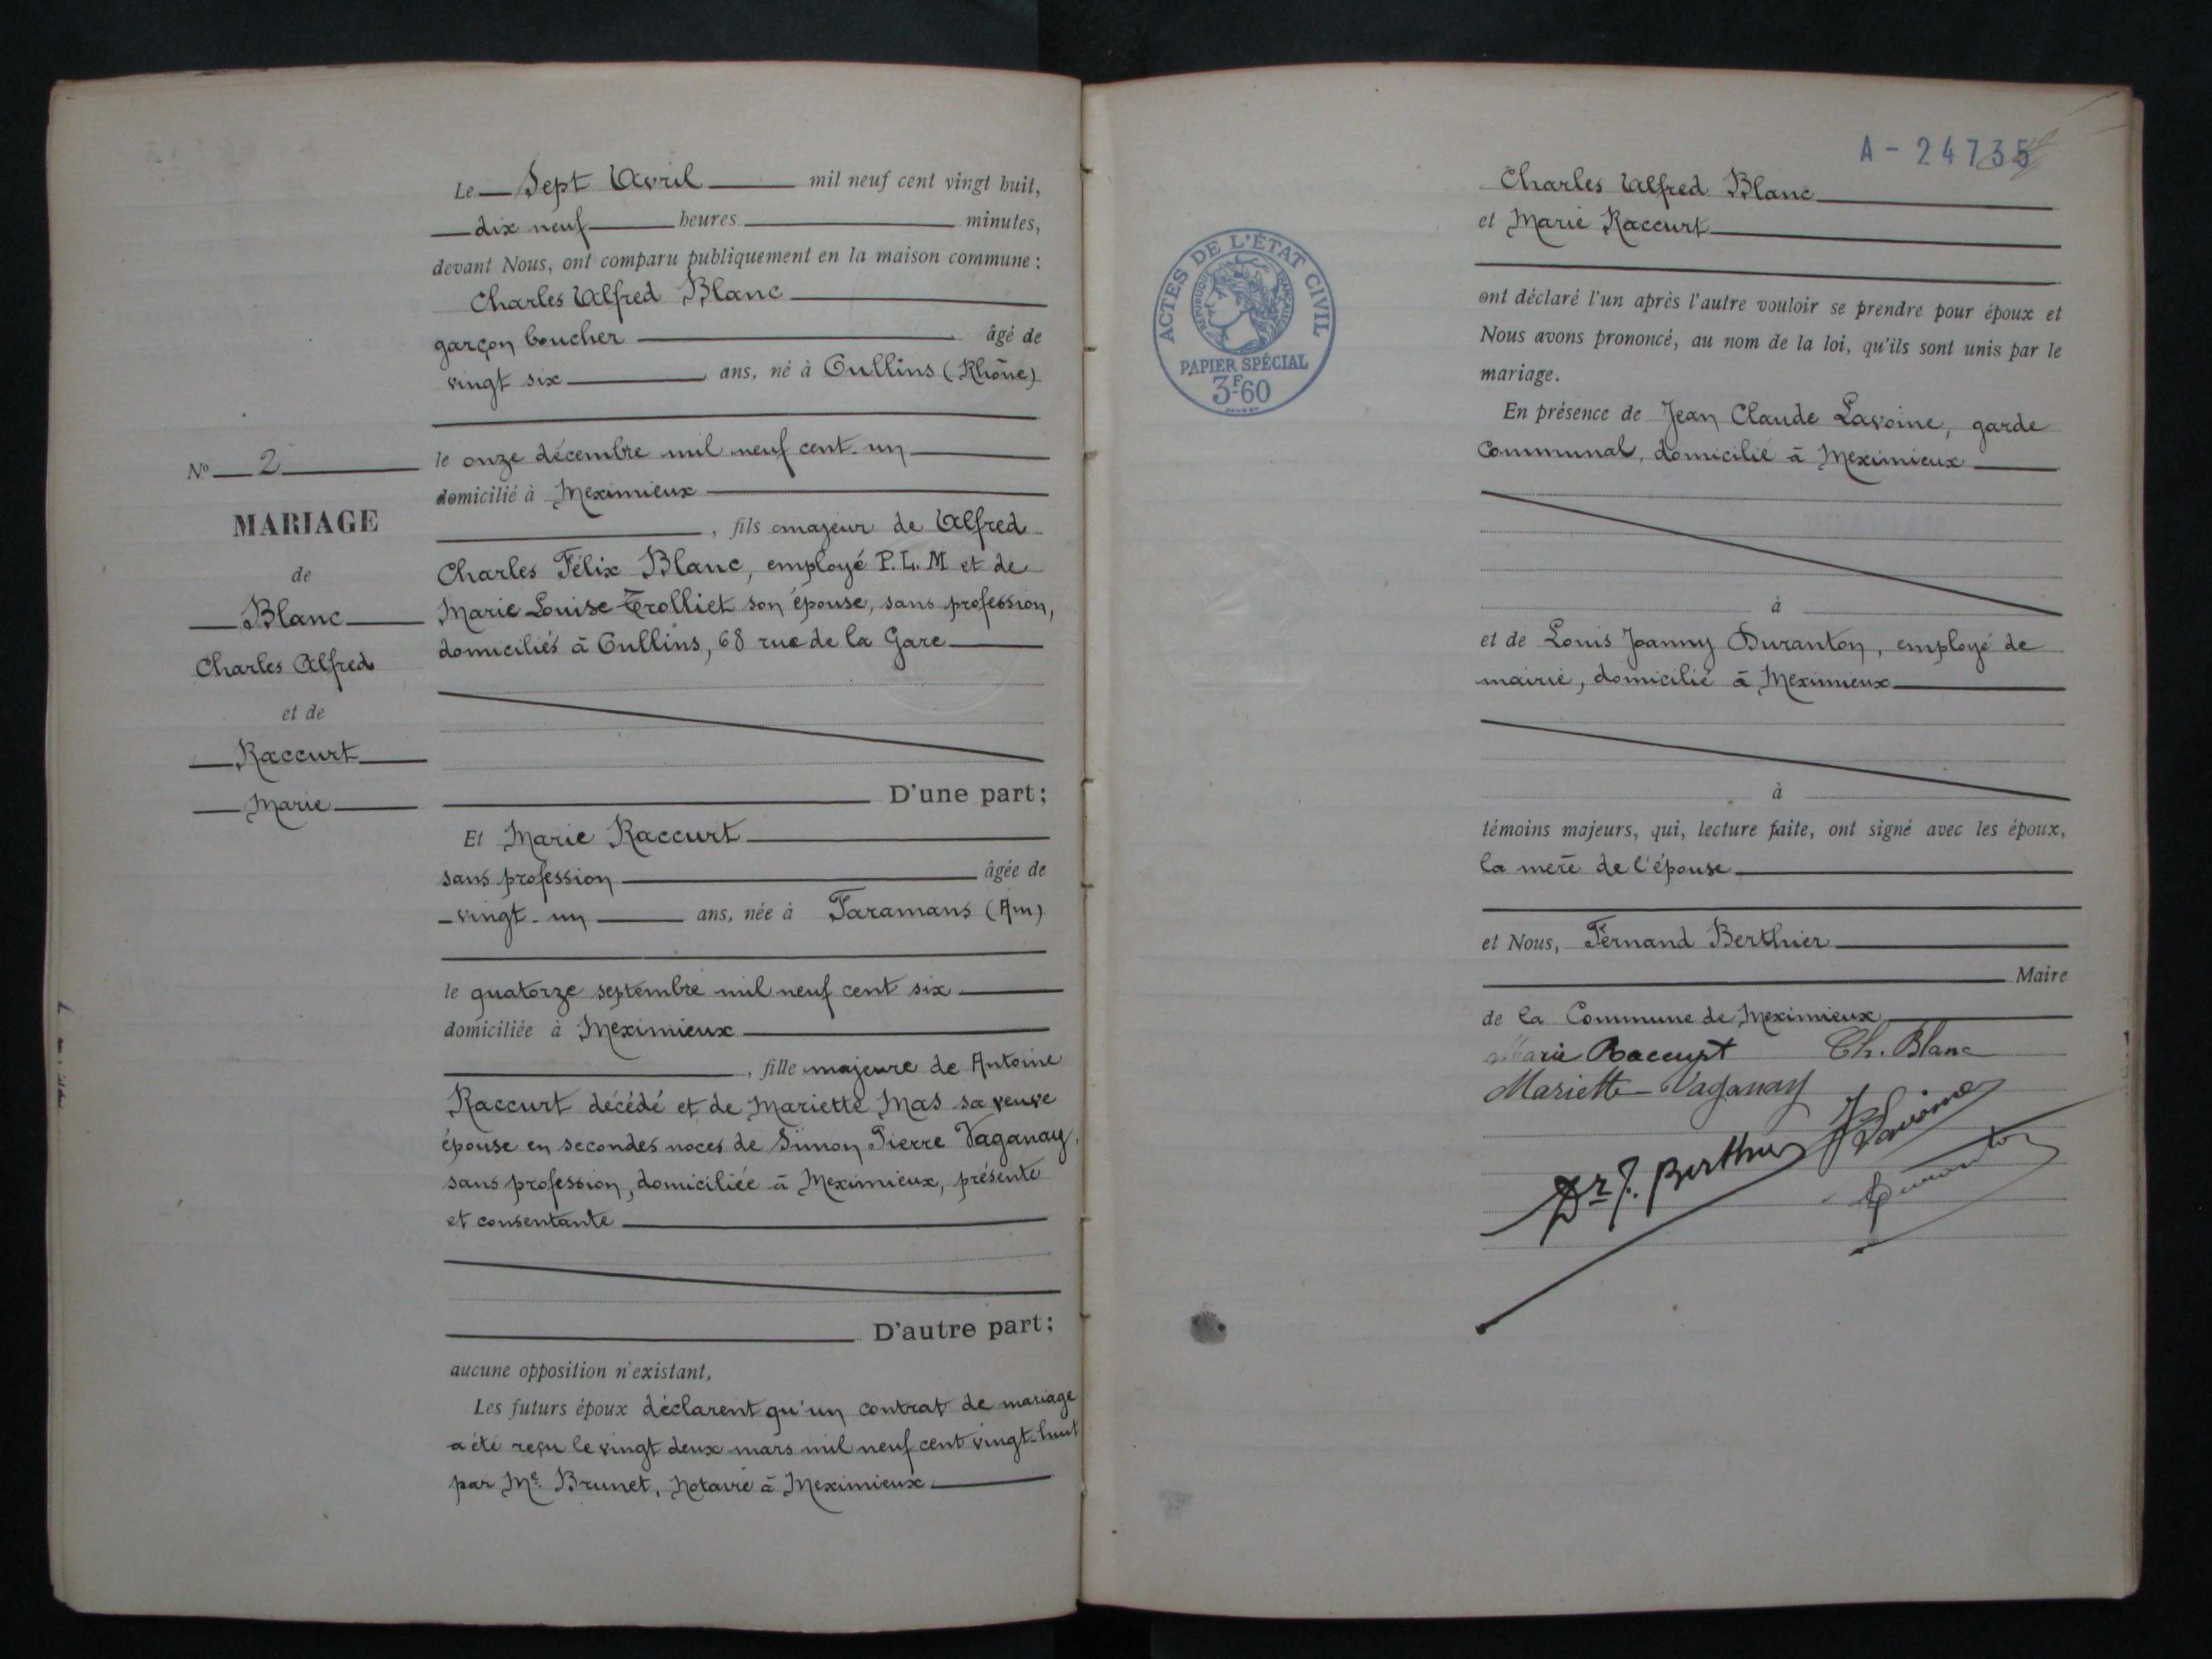 Le Sept Avril mil neuf cent vingt huit,
dix neuf heures minutes,
devant Nous, ont comparu publiquement en la maison commune :
Charles Alfred Blanc
garçon boucher âgé de
vingt six ans, né à Oullins (Rhône)
le onze décembre mil neuf cent un
domicilié à Meximieux
, fils majeur de Alfred
Charles Félix Blanc, employé P.L.M et de
Marie Louise Trolliet son épouse, sans profession,
domiciliés à Oullins, 68 rue de la Gare
D'une part ;
Et Marie Raccurt
sans profession âgée de
vingt-un ans, née à Faramans (Ain)
le quatorze septembre mil neuf cent six
domiciliée à Meximieux
, fille majeure de Antoine
Raccurt décédé et de Mariette Mas sa veuve
épouse en secondes noces de Simon Pierre Vaganay,
sans profession, domiciliée à Meximieux, présente
et consentante
D'autre part ;
aucune opposition n'existant,
Les futurs époux déclarent qu'un contrat de mariage
a été reçu le vingt deux mars mil neuf cent vingt-huit
par Me Brunet, Notaire à Meximieux
No 2
MARIAGE
de
Blanc
Charles Alfred
et de
Raccurt
Marie
A - 24735
ACTES DE L'ÉTAT CIVIL
RÉPUBLIQUE FRANÇAISE
PAPIER SPÉCIAL
3F60
Charles Alfred Blanc
et Marie Raccurt
ont déclaré l'un après l'autre vouloir se prendre pour époux et
Nous avons prononcé, au nom de la loi, qu'ils sont unis par le
mariage.
En présence de Jean Claude Lavoine, garde
Communal, domicilié à Meximieux
à
et de Louis Joanny Duranton, employé de
mairie, domicilié à Meximieux
à
témoins majeurs, qui, lecture faite, ont signé avec les époux,
la mère de l'épouse
et Nous, Fernand Berthier
Maire
de la Commune de Meximieux
Marie Raccurt Ch. Blanc
Mariette Vaganay
Lavoine
Dr F. Berthier
Duranton